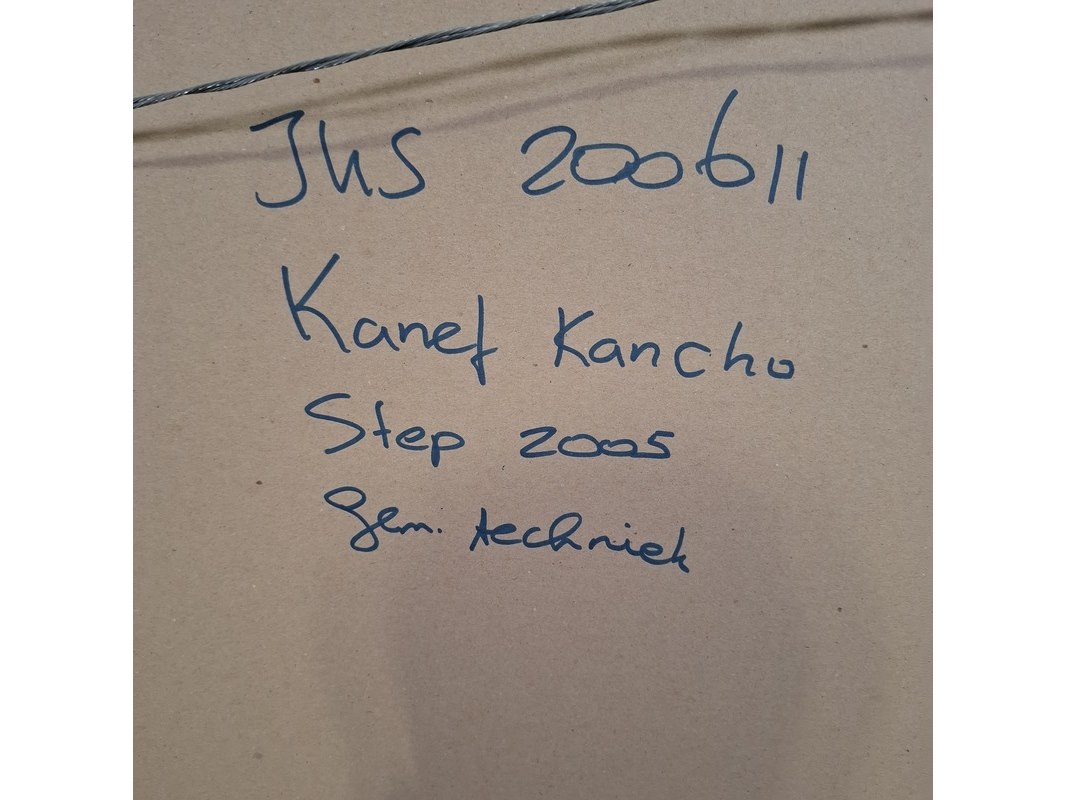 JhS 200611
Kanef Kancho
Step 2005
gem. techniek